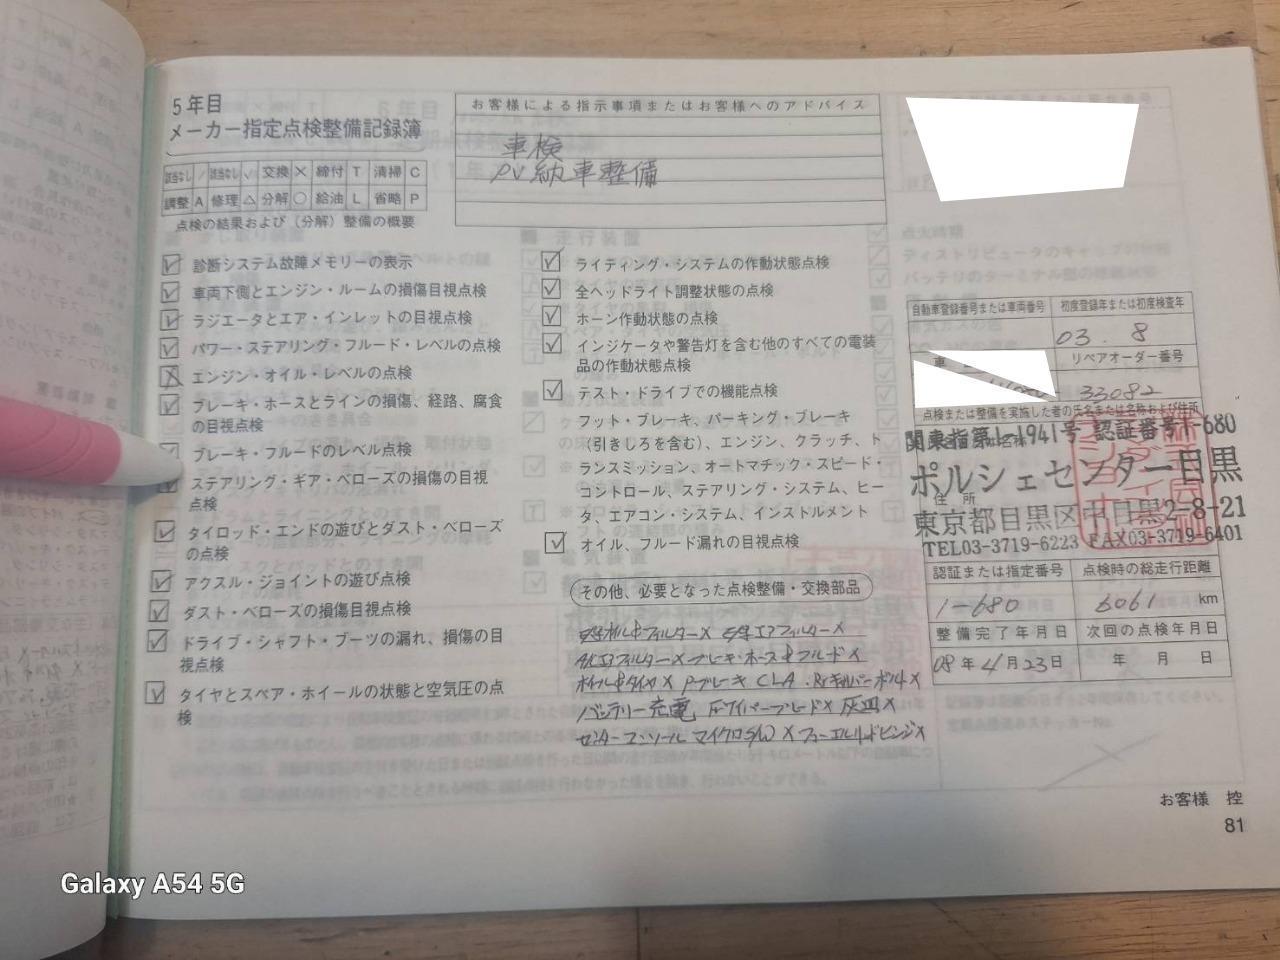 5年目
メーカー指定点検整備記録簿
該当なし / 該当なし レ 交換 × 締付 T 清掃 C
調整 A 修理 △ 分解 ○ 給油 L 省略 P
点検の結果および(分解)整備の概要
お客様による指示事項またはお客様へのアドバイス
車検
PV納車整備
診断システム故障メモリーの表示
車両下側とエンジン・ルームの損傷目視点検
ラジエータとエア・インレットの目視点検
パワー・ステアリング・フルード・レベルの点検
エンジン・オイル・レベルの点検
ブレーキ・ホースとラインの損傷、経路、腐食
の目視点検
ブレーキ・フルードのレベル点検
ステアリング・ギア・ベローズの損傷の目視
点検
タイロッド・エンドの遊びとダスト・ベローズ
の点検
アクスル・ジョイントの遊び点検
ダスト・ベローズの損傷目視点検
ドライブ・シャフト・ブーツの漏れ、損傷の目
視点検
タイヤとスペア・ホイールの状態と空気圧の点
検
ライティング・システムの作動状態点検
全ヘッドライト調整状態の点検
ホーン作動状態の点検
インジケータや警告灯を含む他のすべての電装
品の作動状態点検
テスト・ドライブでの機能点検
フット・ブレーキ、パーキング・ブレーキ
(引きしろを含む)、エンジン、クラッチ、ト
ランスミッション、オートマチック・スピード・
コントロール、ステアリング・システム、ヒー
タ、エアコン・システム、インストルメント
オイル、フルード漏れの目視点検
その他、必要となった点検整備・交換部品
フィルター× エアフィルター×
フィルター× ブレーキ・ホース&フルード×
ホイル&タイヤ× Pブレーキ CLA・Rrキャリパーボルト×
バッテリー充電 Frワイパーブレード× 灰皿×
センターコンソール マイクロS/W× フューエルリッドヒンジ×
自動車登録番号または車両番号 初度登録年または初度検査年
03. 8
車 リペアオーダー番号
33082
点検または整備を実施した者の氏名または名称および住所
関東指第1-1941号 認証番号1-680
ポルシェセンター目黒
住所
東京都目黒区中目黒2-8-21
TEL03-3719-6223 FAX03-3719-6401
認証または指定番号 点検時の総走行距離
1-680 6061 km
整備完了年月日 次回の点検年月日
08年4月23日 年 月 日
お客様 控
81
Galaxy A54 5G